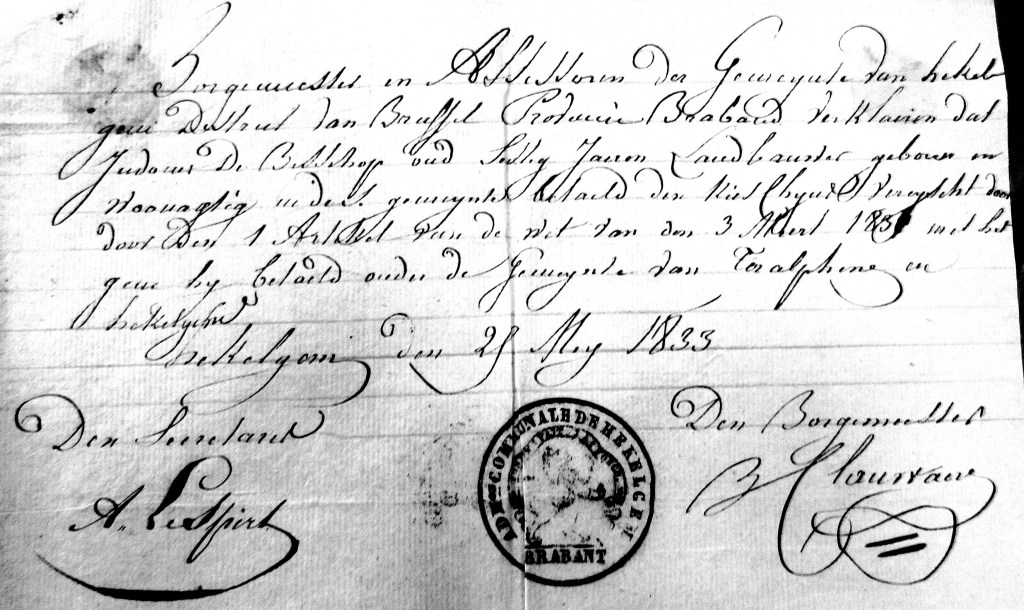 Borgemeester en Assessoren der Gemeynte van hekel
gem District van Brussel Provincie Braband verklaeren dat
Judocus De Bisschop oud sestig Jaeren Landbauwer geboren en
woonagtig in des. gemeynte betaeld den Kies Chyns vereyscht door
door den 1 Artikel van de wet van den 3 Meert 1831 met het
gene hy betaeld onder de Gemeynte van Teralphene en
hekelgem
hekelgem den 25 Mey 1833
Den Secretaris
Den Borgemeester
A. LeSpirt
ADMON COMMUNALE DE HEKELGEM
BRABANT